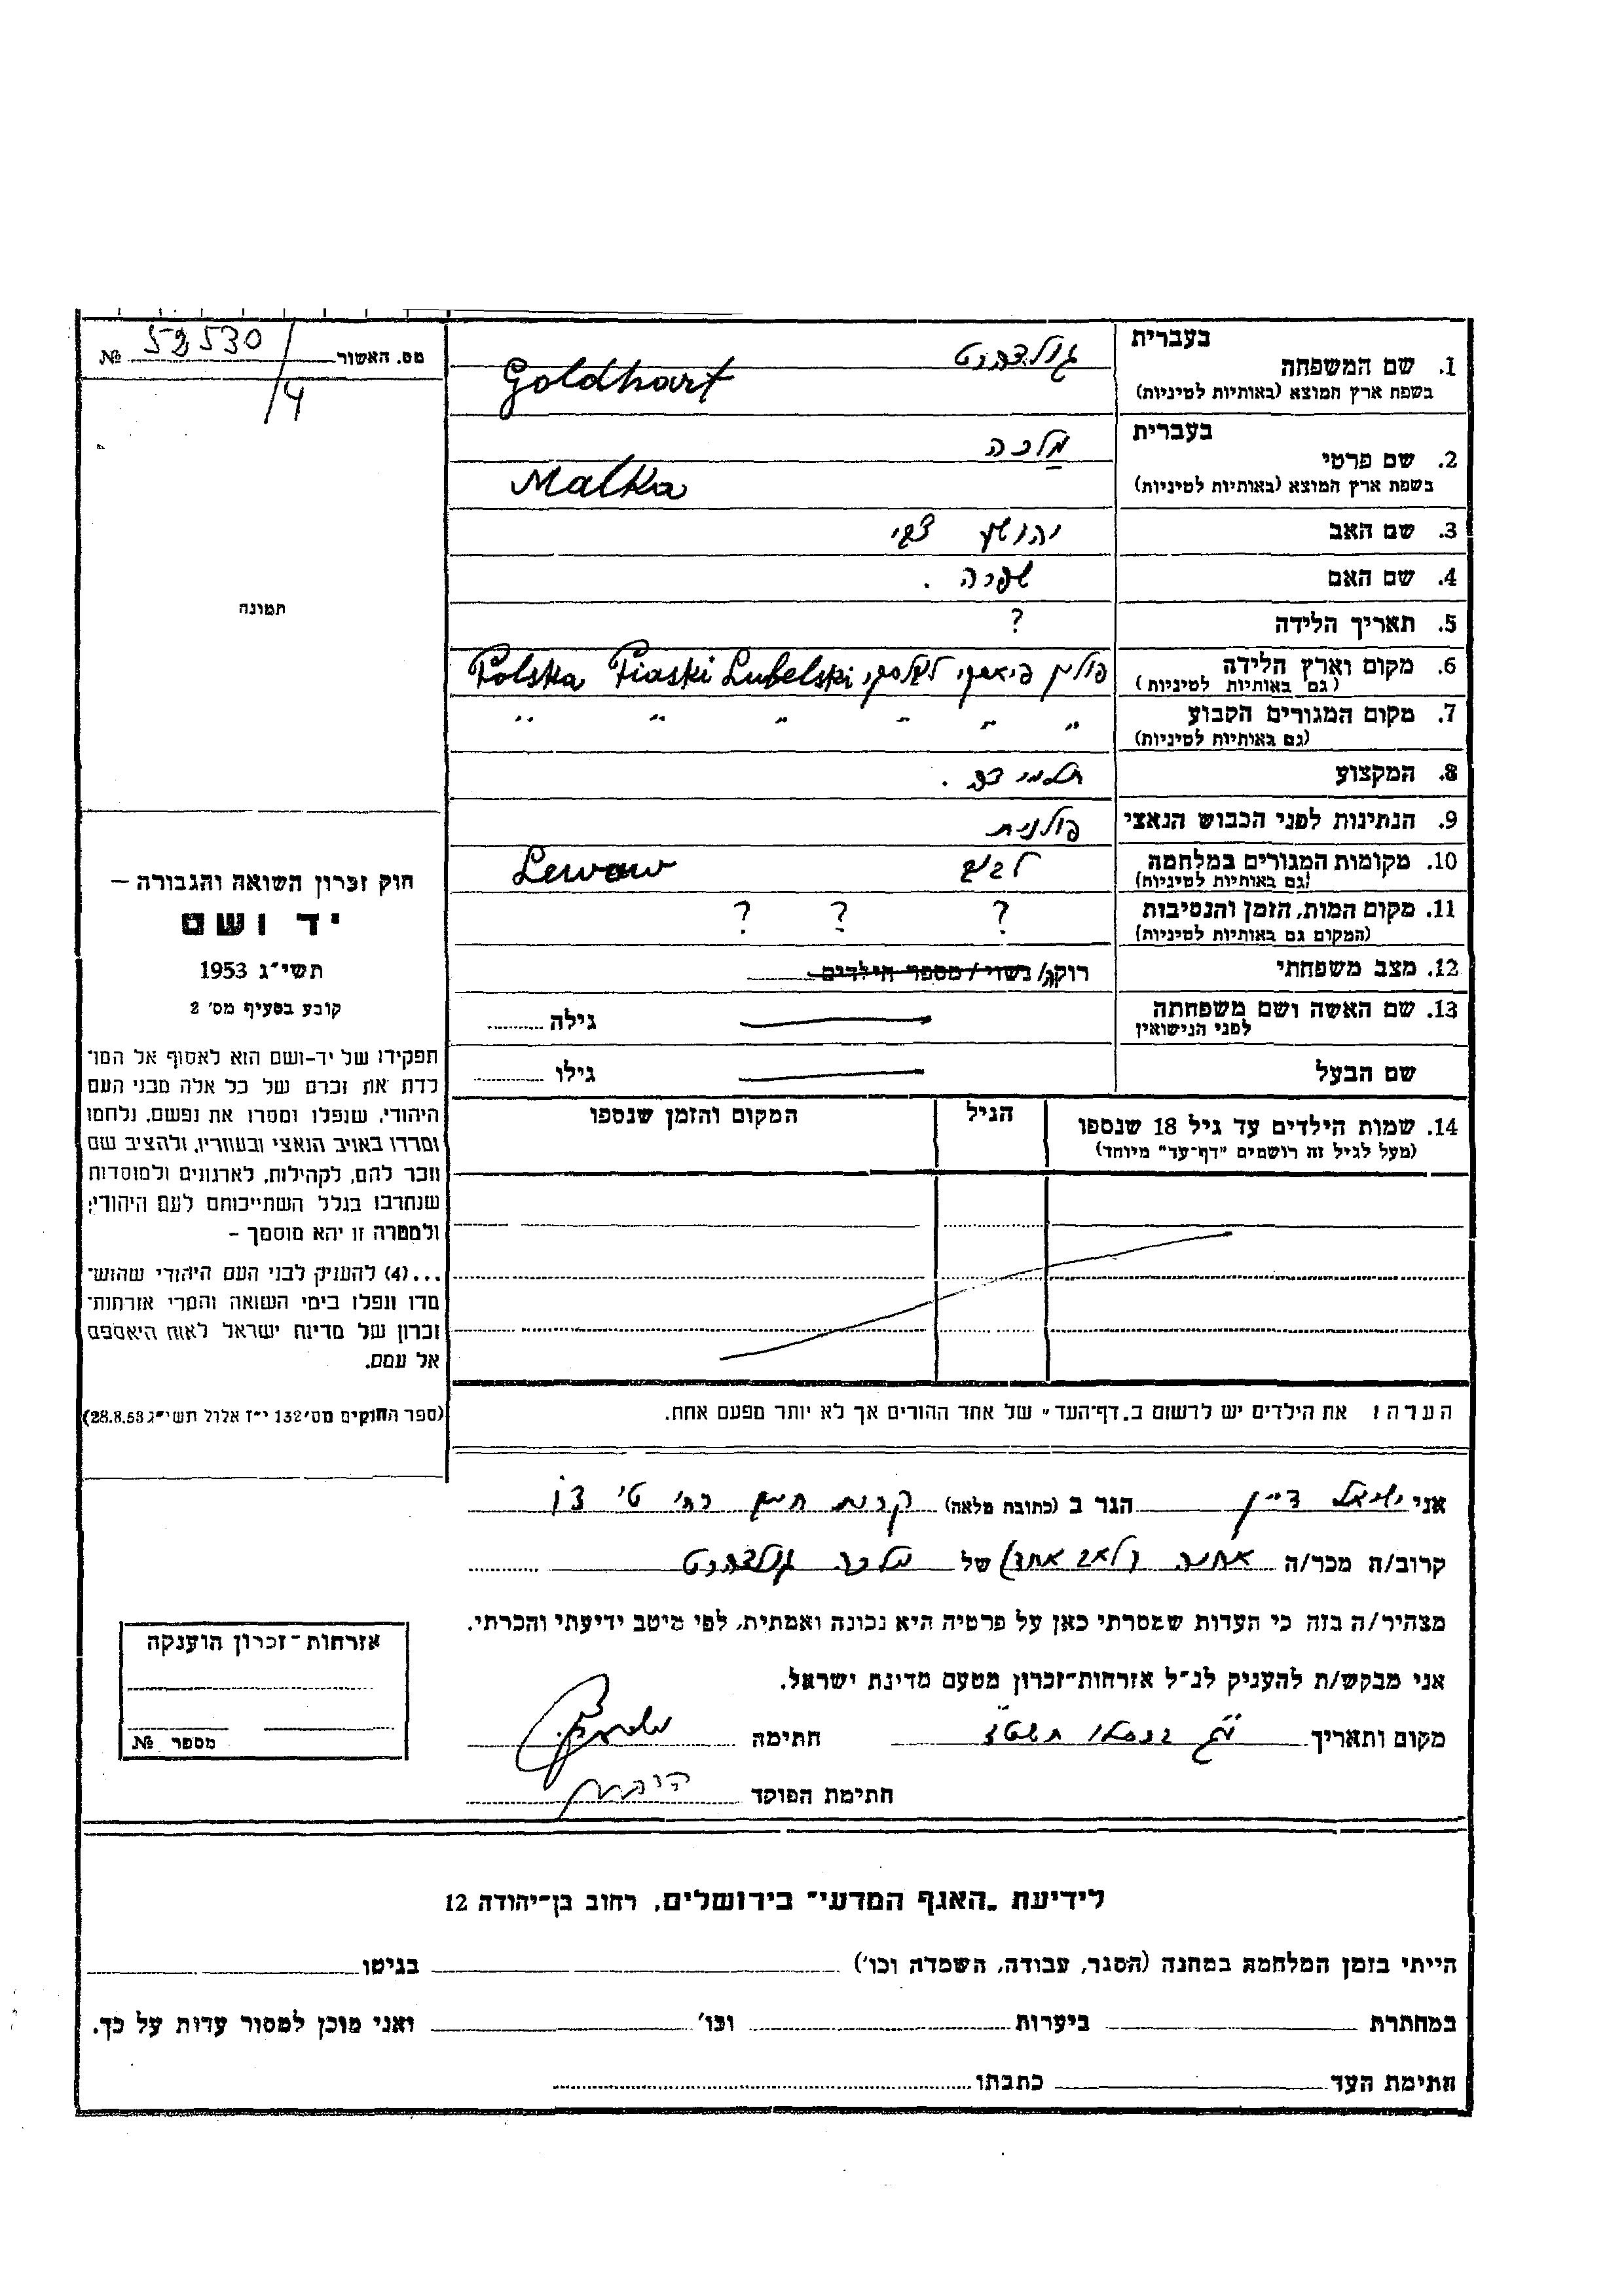 מס. האשור № 52530/4
תמונה
בעברית גולדהרט
1. שם המשפחה
בשפת ארץ המוצא (באותיות לטיניות) Goldhart
בעברית מלכה
2. שם פרטי
בשפת ארץ המוצא (באותיות לטיניות) Malka
3. שם האב יהושע צבי
4. שם האם שפרה .
5. תאריך הלידה ?
6. מקום וארץ הלידה פולין פיאסקי לובלסקי Polska Piaski Lubelski
(גם באותיות לטיניות)
7. מקום המגורים הקבוע " " " " " " "
(גם באותיות לטיניות)
8. המקצוע
9. הנתינות לפני הכבוש הנאצי פולנית
10. מקומות המגורים במלחמה לבוב Lewow
(גם באותיות לטיניות)
11. מקום המות, הזמן והנסיבות ? ? ?
(המקום גם באותיות לטיניות)
12. מצב משפחתי רוק/ נשוי / מספר הילדים
13. שם האשה ושם משפחתה גילה
לפני הנישואין
שם הבעל גילו
14. שמות הילדים עד גיל 18 שנספו הגיל המקום והזמן שנספו
(מעל לגיל זה רושמים "דף-עד" מיוחד)
חוק זכרון השואה והגבורה –
יד ושם
תשי"ג 1953
קובע בסעיף מס' 2
תפקידו של יד-ושם הוא לאסוף אל המו־
לדת את זכרם של כל אלה מבני העם
היהודי, שנפלו ומסרו את נפשם, נלחמו
ומרדו באויב הנאצי ובעוזריו, ולהציב שם
וזכר להם, לקהילות, לארגונים ולמוסדות
שנחרבו בגלל השתייכותם לעם היהודי;
ולמטרה זו יהא מוסמך –
...(4) להעניק לבני העם היהודי שהוש־
מדו ונפלו בימי השואה והמרי אזרחות־
זכרון של מדינת ישראל לאות היאספם
אל עמם.
(ספר החוקים מס' 132 י"ז אלול תשי"ג 28.8.53)
הערה: את הילדים יש לרשום ב„דף־העד" של אחד ההורים אך לא יותר מפעם אחת.
אני ישראל דיין הגר ב (כתובת מלאה) קרית חיים רח' ט'
קרוב/ה מכר/ה של מלכה גולדהרט
מצהיר/ה בזה כי העדות שמסרתי כאן על פרטיה היא נכונה ואמתית, לפי מיטב ידיעתי והכרתי.
אני מבקש/ת להעניק לנ"ל אזרחות־זכרון מטעם מדינת ישראל.
מקום ותאריך חתימה
חתימת הפוקד
אזרחות־זכרון הוענקה
מספר №
לידיעת „האגף המדעי" בירושלים, רחוב בן־יהודה 12
הייתי בזמן המלחמה במחנה (הסגר, עבודה, השמדה וכו') בגיטו
במחתרת ביערות וכו' ואני מוכן למסור עדות על כך.
חתימת העד כתבתו